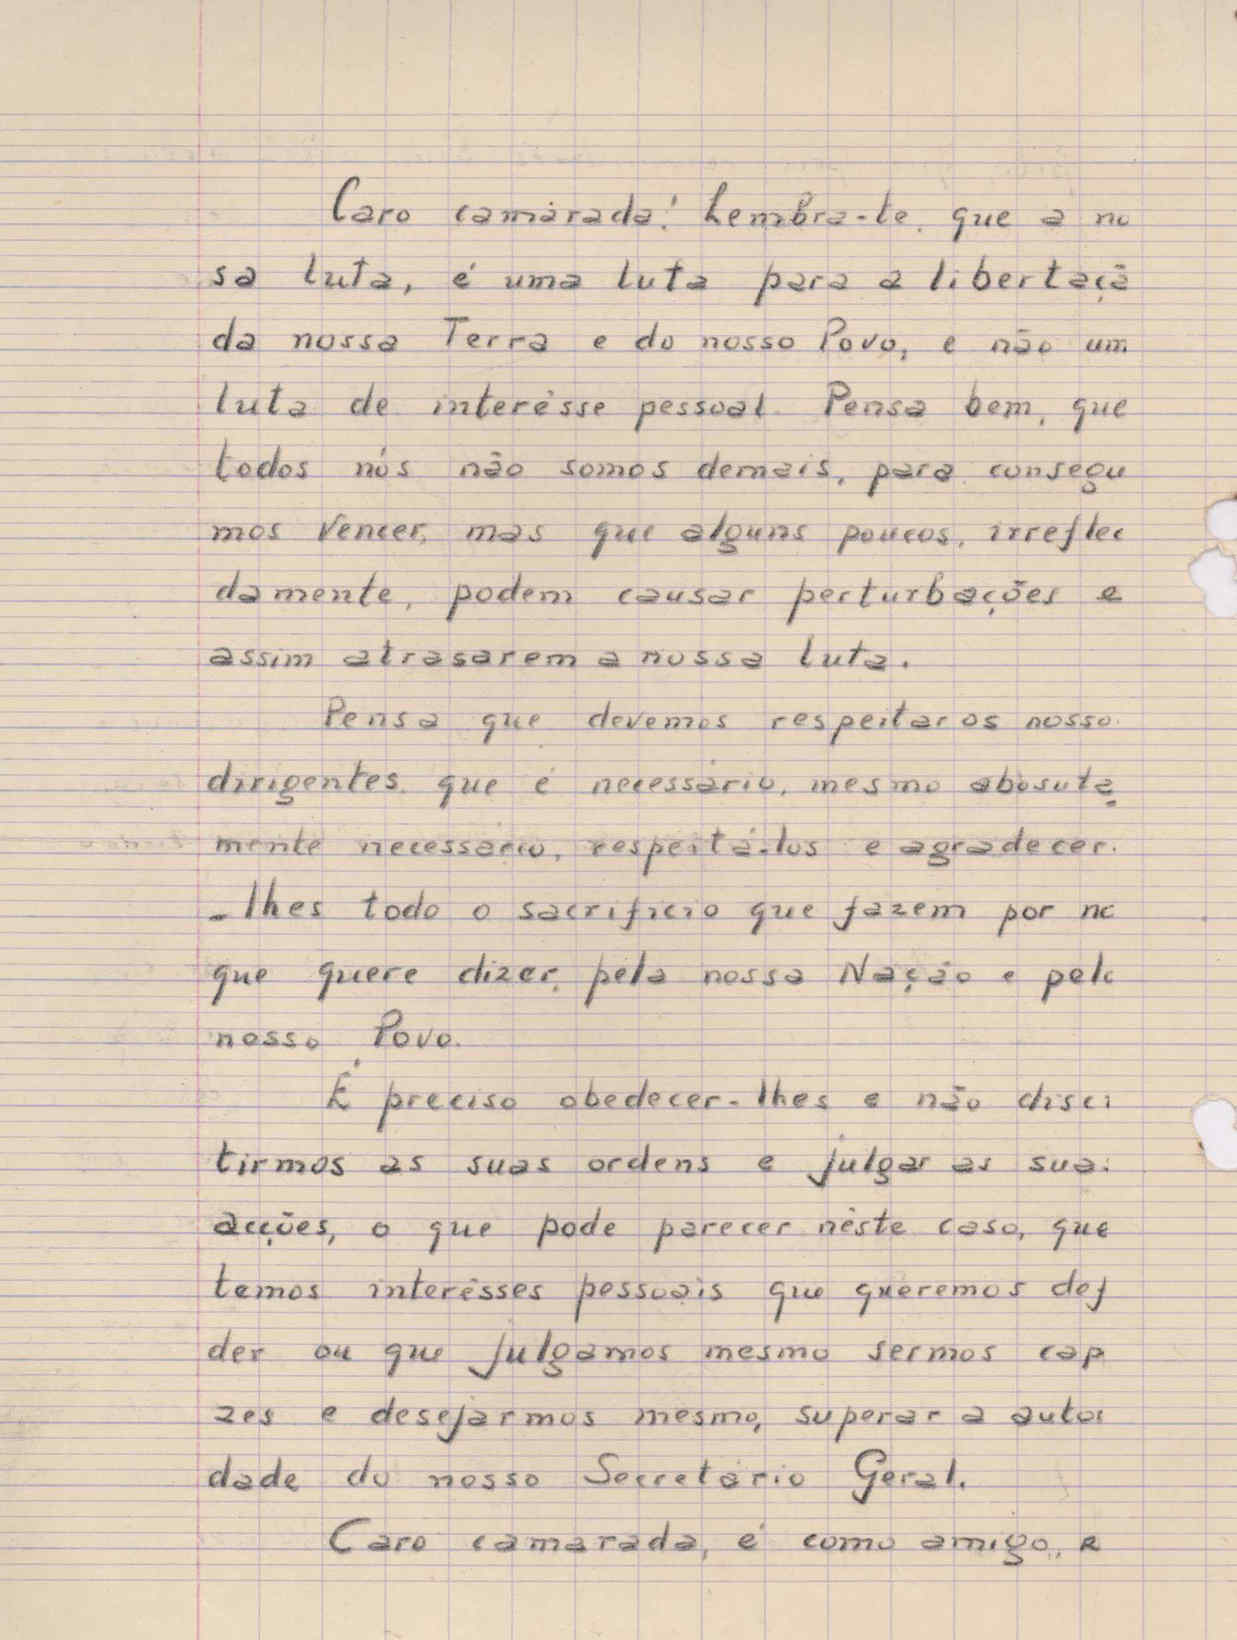 Caro camarada! Lembra-te, que a no
sa luta, é uma luta para a libertaçã
da nossa Terra e do nosso Povo, e não um
luta de interêsse pessoal. Pensa bem, que
todos nós não somos demais, para consegu
mos Vencer, mas que alguns poucos, irreflec
damente, podem causar perturbações e
assim atrasarem a nossa luta.
Pensa que devemos respeitar os nosso
dirigentes que é necessário, mesmo abosuta
mente necessário, respeitá-los e agradecer-
-lhes todo o sacrifício que fazem por nó
que quere dizer, pela nossa Nação e pelo
nosso Povo.
É preciso obedecer-lhes e não discu
tirmos as suas ordens e julgar as suas
acções, o que pode parecer nêste caso, que
temos interêsses pessoais que queremos def
der ou que julgamos mesmo sermos cap
zes e desejarmos mesmo, superar a autor
dade do nosso Secretário Geral.
Caro camarada, é como amigo, e